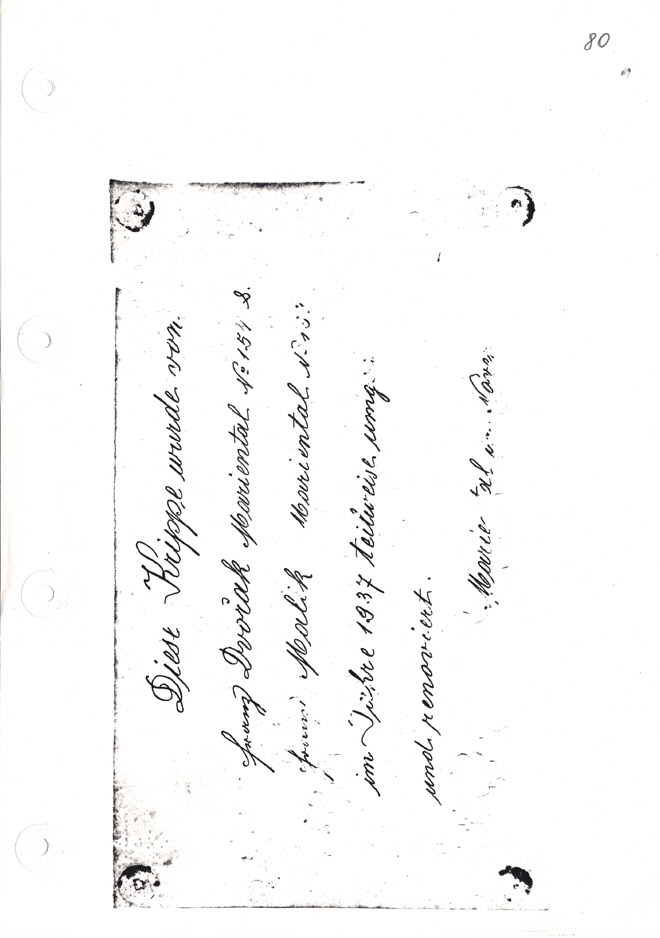 80
Diese Krippe wurde von
Franz Dvořák Mariental No 154 S.
Malik Mariental N.
im Jahre 1937 teilweise umg
und renoviert.